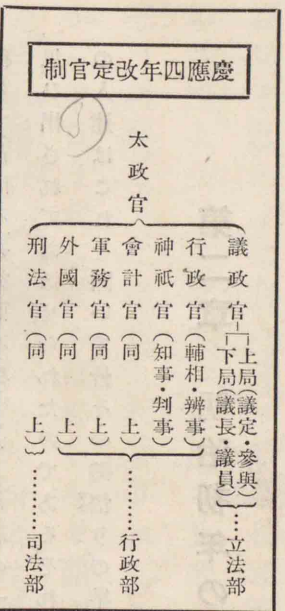 慶應四年改定官制
太政官
議政官
上局(議定・參與)
下局(議長・議員)
……立法部
行政官(輔相・辨事)
神祇官(知事・判事)
會計官(同 上)
軍務官(同 上)
外國官(同 上)
……行政部
刑法官(同 上)
……司法部